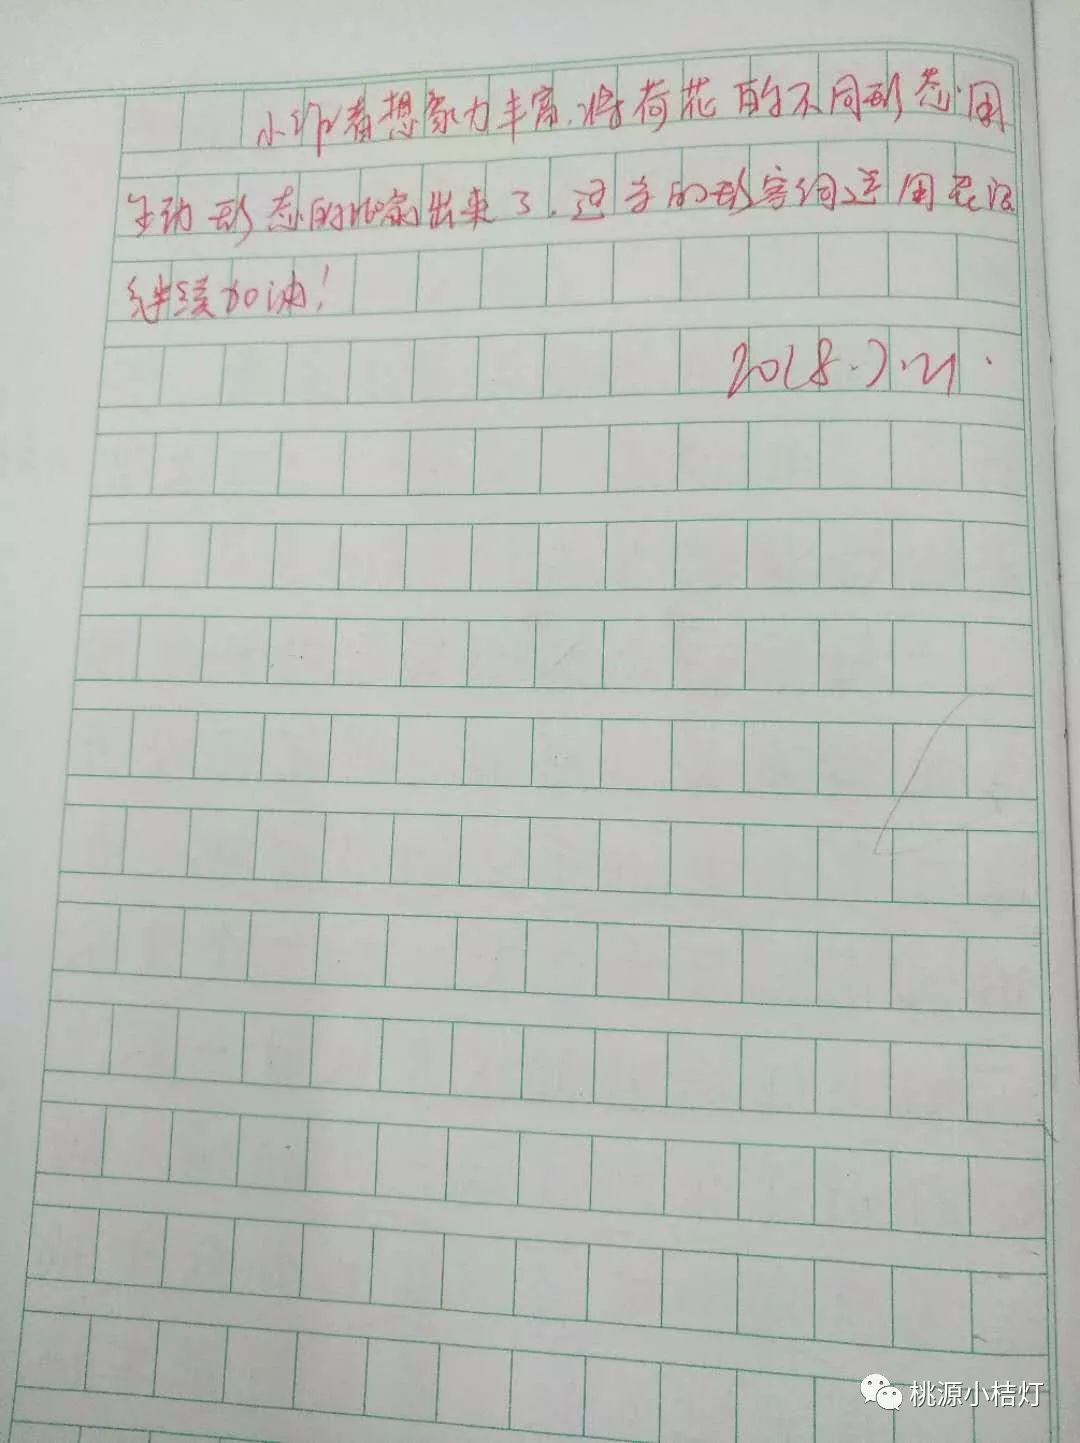 小作者想象力丰富.将荷花的不同形态用
生动形态的比喻出来了.过多的形容词运用
继续加油!
2018.7.21.
桃源小桔灯